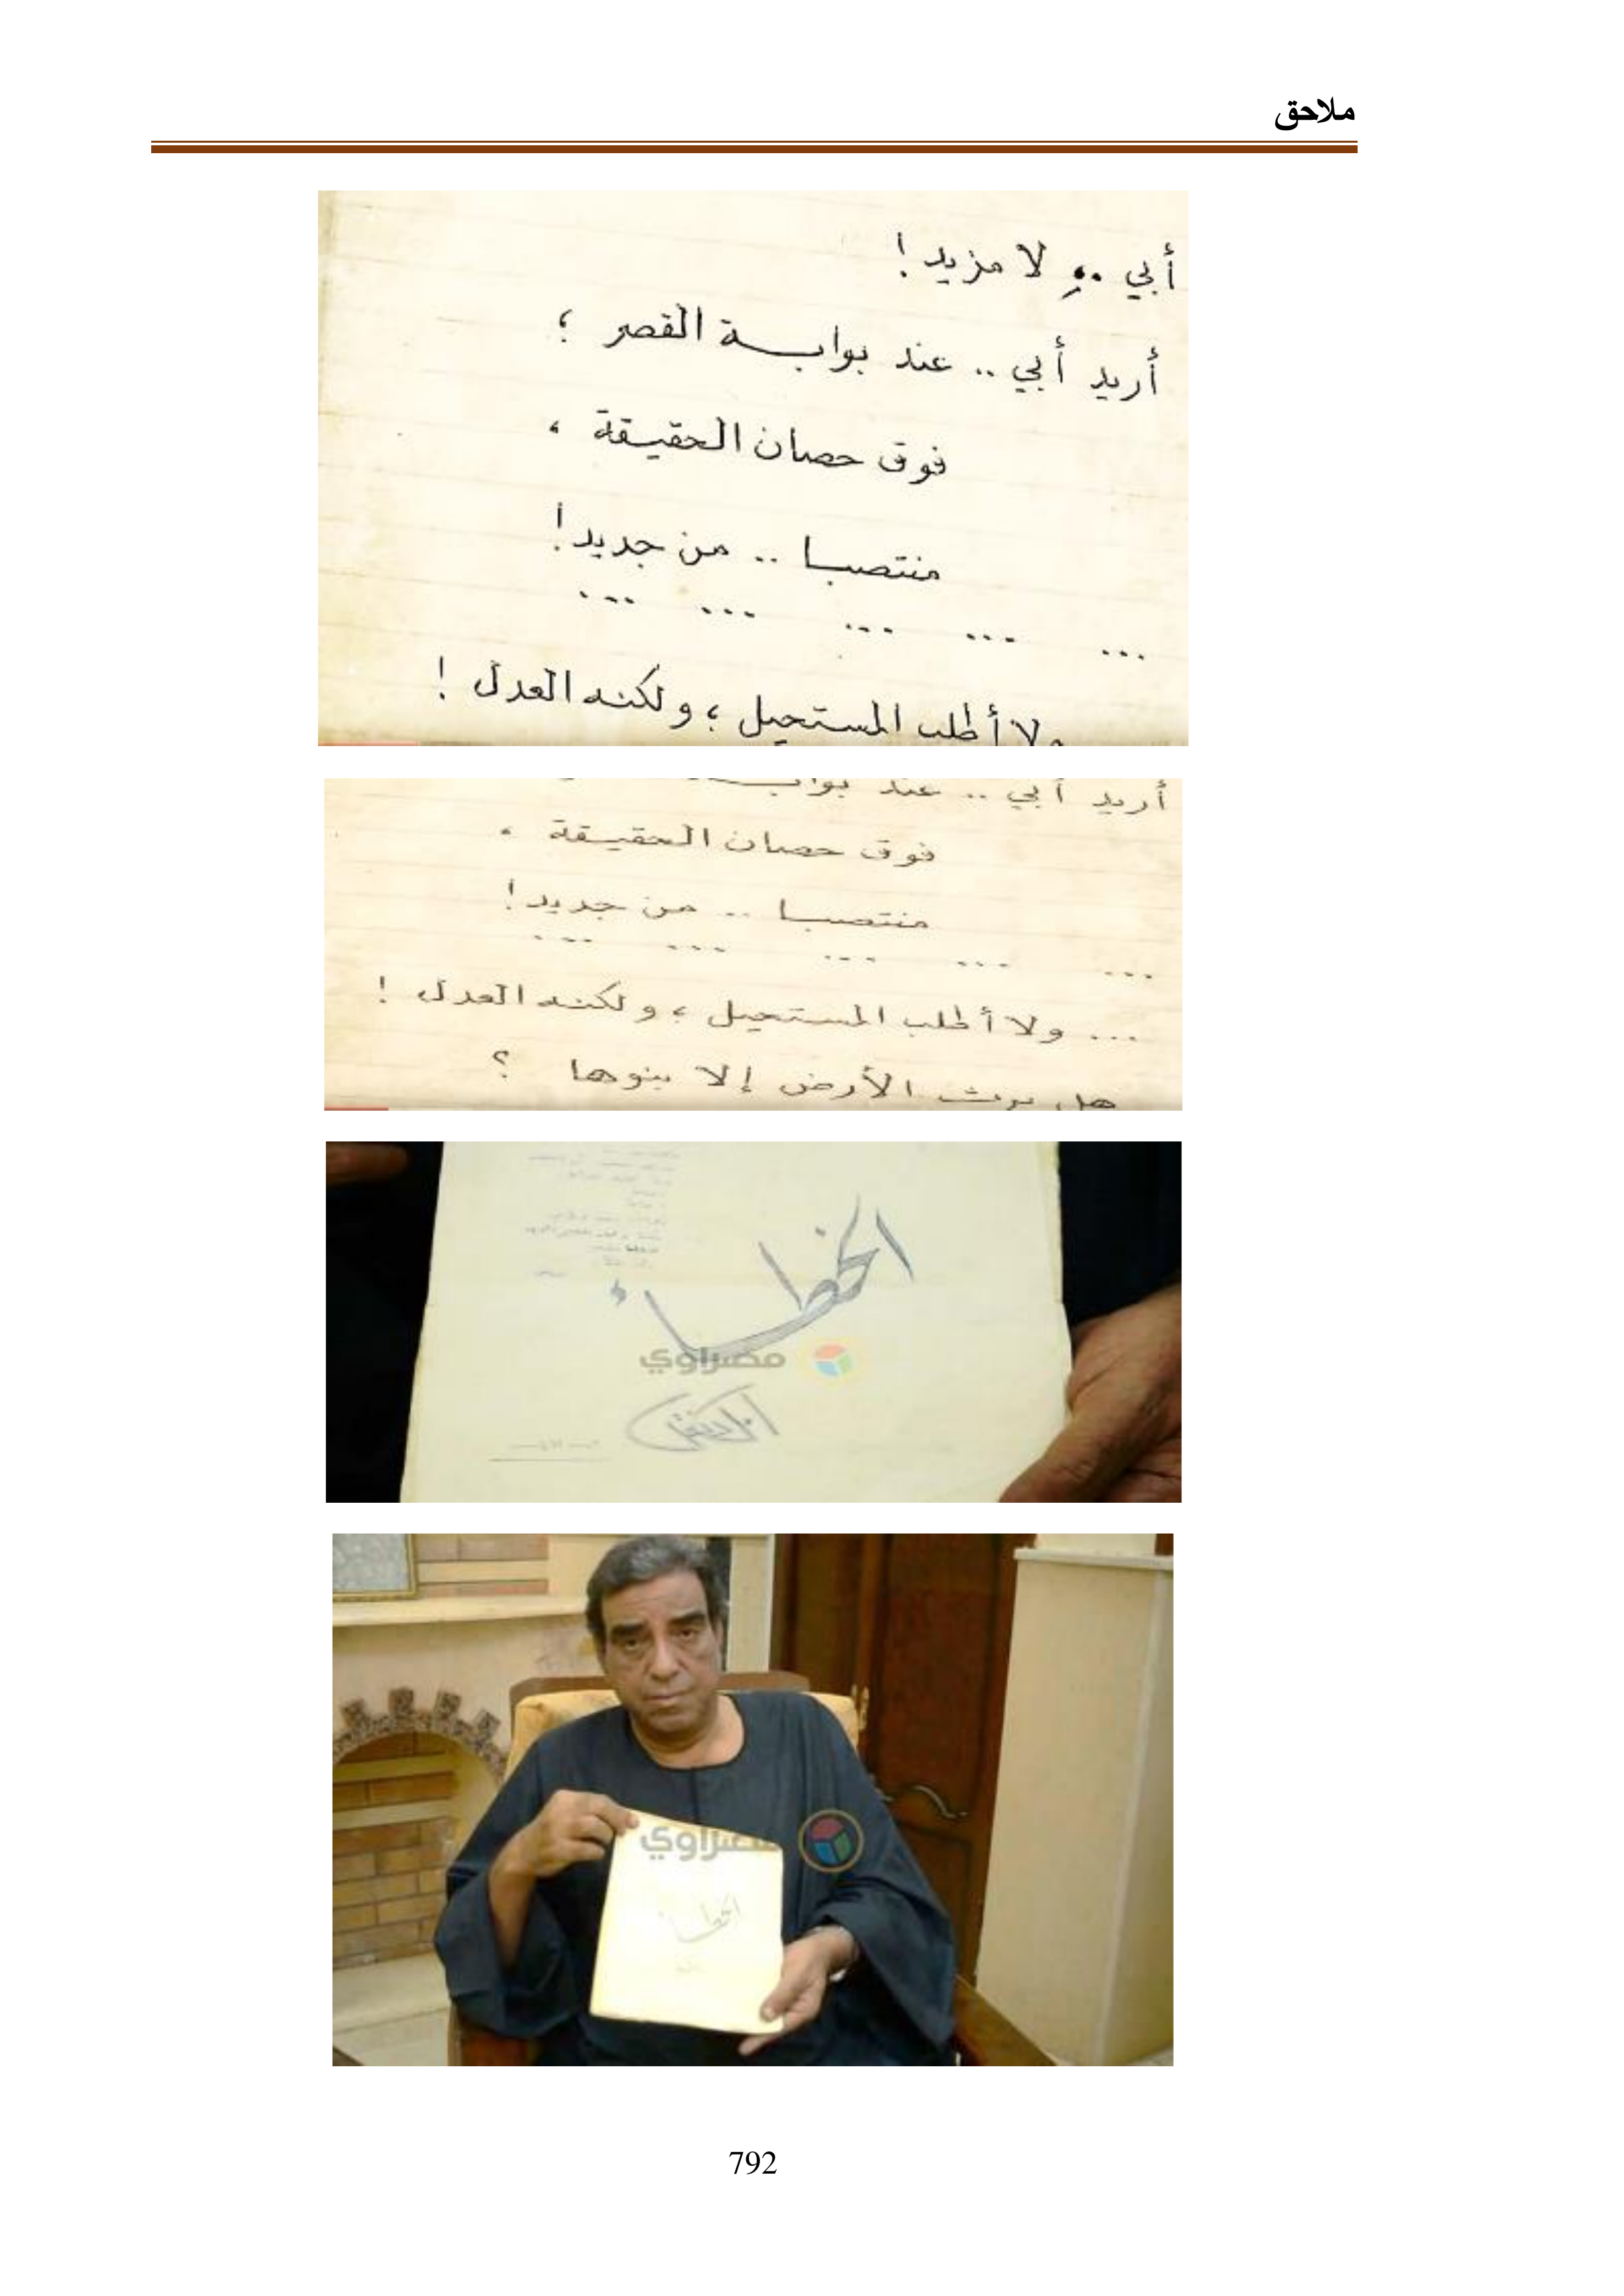 ملاحق
أبي .. لا مزيد !
أريد أبي .. عند بوابة القصر ؛
فوق حصان الحقيقة ،
منتصبا .. من جديد !
... ... ... ... ...
ولا أطلب المستحيل ؛ ولكنه العدل !
أريد أبي .. عند
فوق حصان الحقيقة ،
منتصبا .. من جديد !
... ... ... ... ...
... ولا أطلب المستحيل ؛ ولكنه العدل !
هل يرث الأرض إلا بنوها ؟
الخطاء
مصراوي
أمل دنقل
مصراوي
الخطاء
792